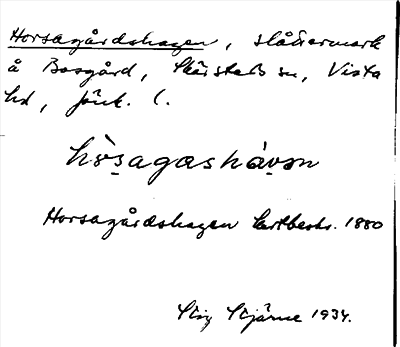 Horsagårdshagen, slåttermark
å Bosgård, Skärstads sn, Vista
hd, Jönk. l.
hòsagashàvən
Horsagårdshagen kartbeskr. 1880
Stig Stjärne 1934.